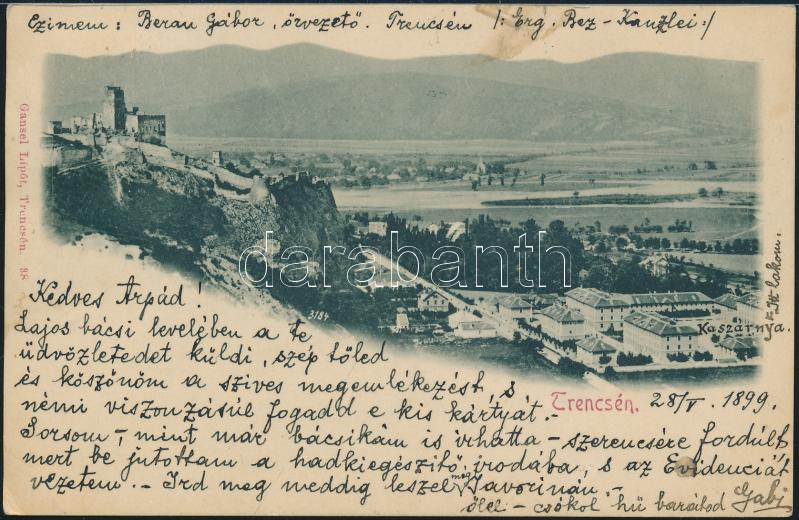 Ezimem: Beran Gábor, őrvezető. Trencsén /: Erg. Bez-Kanzlei :/
Gansel Lipót, Trencsén. 38
darabanth
3184
Kaszárnya.
itt lakom.
Kedves Árpád!
Lajos bácsi levelében a te
üdvözletedet küldi, szép tőled
és köszönöm a szives megemlékezést, s
némi viszonzásúl fogadd e kis kártyát.-
Trencsén. 28/V. 1899.
Sorsom-, mint már bácsikám is irhatta - szerencsére fordúlt
mert be jutottam a hadkiegészítő irodába, s az Evidenciát
vezetem. - Ird meg meddig leszel még Javorinán.-
ölel - csókol hű barátod Gabi